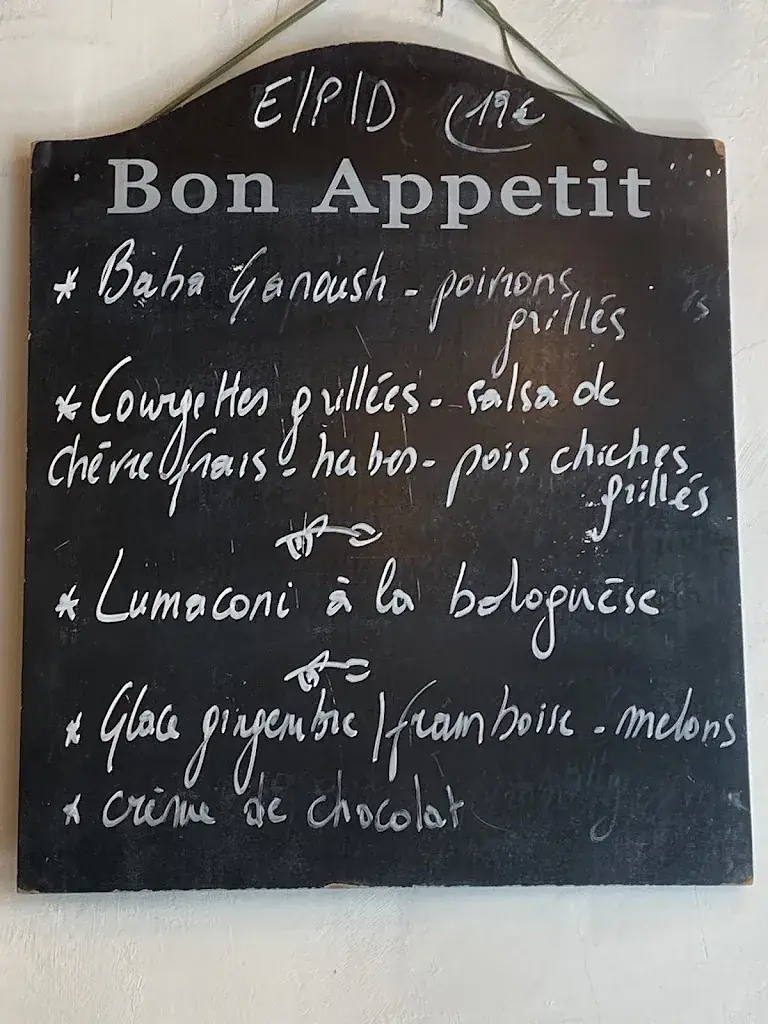 E/P/D (19€
Bon Appetit
* Baba Ganoush - poivrons
grillés
* Courgettes grillées - salsa de
chèvre frais - herbes - pois chiches
grillés
* Lumaconi à la bolognèse
* Glace gingembre / framboise - melons
* crème de chocolat